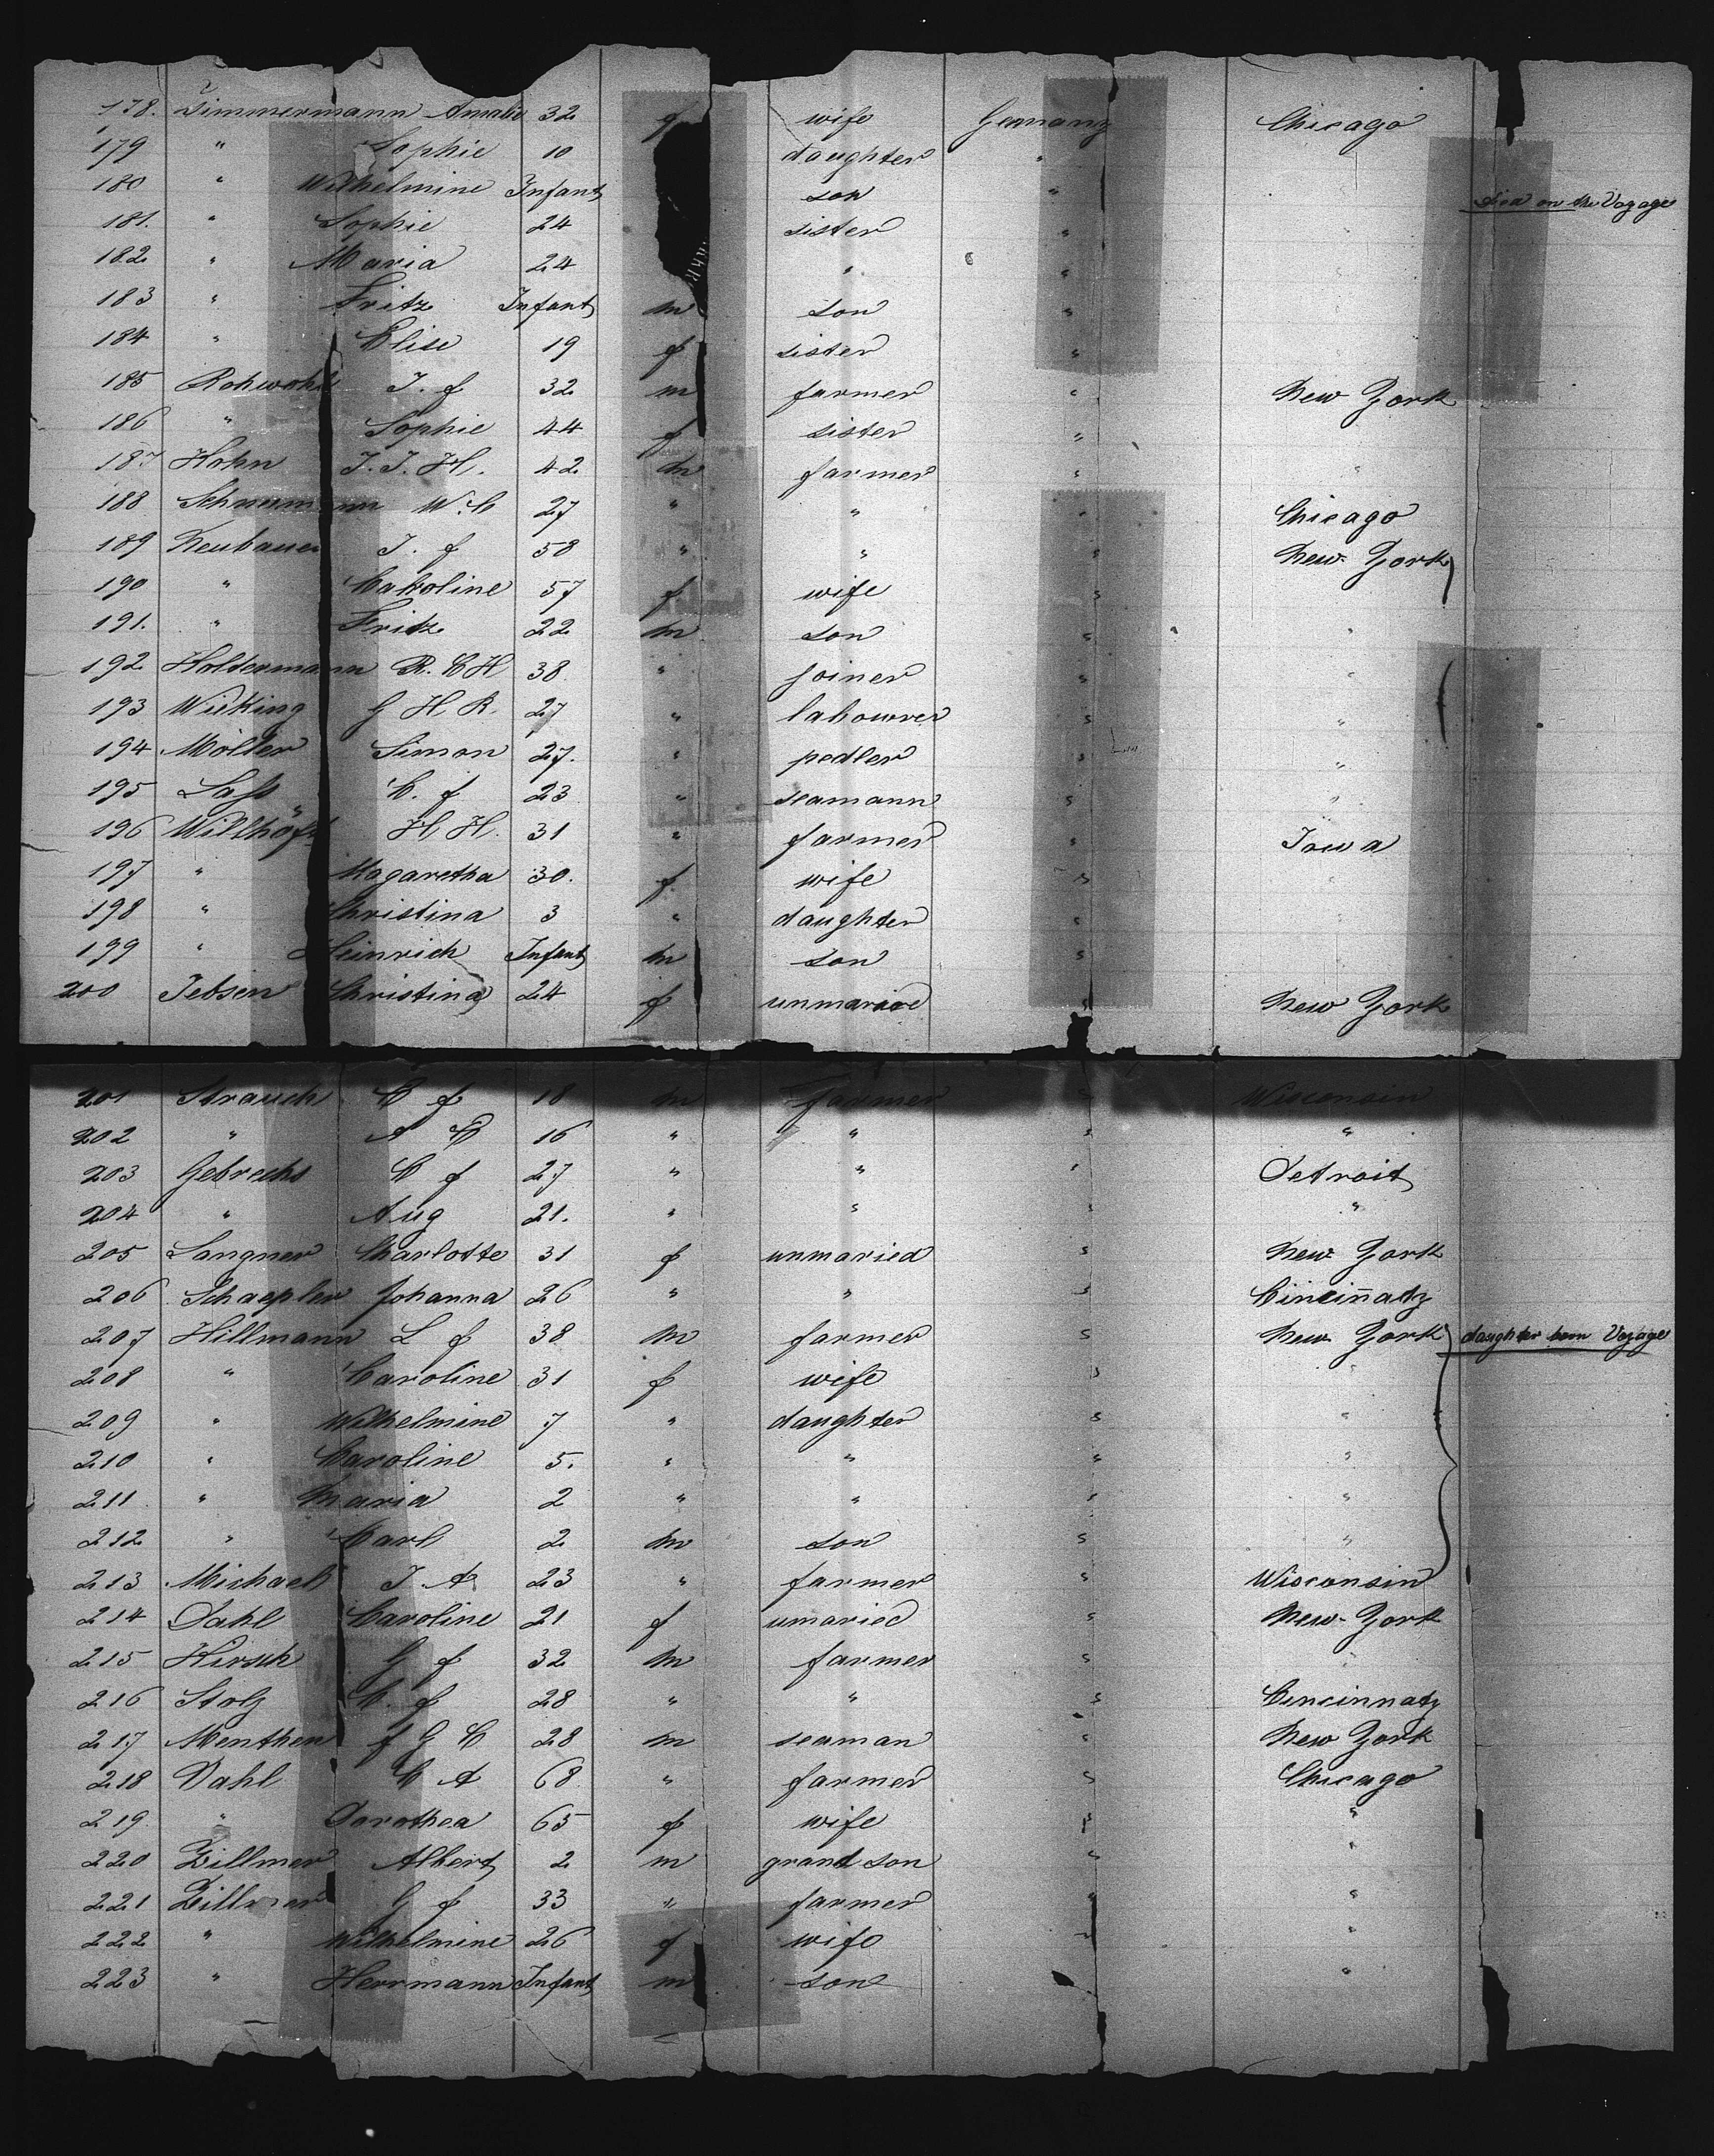 178. Zimmermann Amalie 32 f wife Germany Chicago
179 " Sophie 10 daughter " "
180 " Wilhelmine Infant son " " Died on the Voyage
181. " Sophie 24 sister " "
182 " Maria 24 " " "
183 " Fritz Infant m son " "
184 " Elise 19 f sister " "
185 Rohwohl J. f 32 m farmer " New York
186 " Sophie 44 f sister " "
187 Hohn J. J. H. 42 m farmer " "
188 W. C 27 " " " Chicago
189 Neubauer J. f 58 " " " New York
190 " Caroline 57 f wife "
191. " Fritz 22 m son " "
192 Holdermann R. C H 38 " joiner " "
193 Wieking G H R. 27 " labourer " "
194 Möller Simon 27. " pedler " "
195 Lass C. f 23 " seamann " "
196 Willhöft H H. 31 " farmer " Iowa
197 " Magaretha 30. f wife " "
198 " Christina 3 " daughter " "
199 " Heinrich Infant m son " "
200 Jebsen Christina 24 f unmaried " New York
201 Strauch C f 18 m farmer " Wisconsin
202 " A C 16 " " " "
203 Gebrechs C f 27 " " " Detroit
204 " Aug 21. " " " "
205 Langner Charlotte 31 f unmaried " New York
206 Schaepler Johanna 26 " " " Cincinnaty
207 Hillmann L f 38 m farmer " New York daughter born Voyage
208 " Caroline 31 f wife " "
209 " Wilhelmine 7 " daughter " "
210 " Caroline 5. " " " "
211 " Maria 2 " " " "
212 " Carl 2 m son " "
213 Michael J. A 23 " farmer " Wisconsin
214 Dahl Caroline 21 f umaried " New York
215 Hirsch G f 32 m farmer " "
216 Stolz C. f 28 " " " Cincinnaty
217 Menthen f G C 28 m seaman " New York
218 Dahl C A 68 " farmer " Chicago
219 " Dorothea 65 f wife " "
220 Zillmer Albert 2 m grand son " "
221 Zillmer G f 33 " farmer " "
222 " Wilhelmine 26 f wife " "
223 " Herrmann Infant m son "